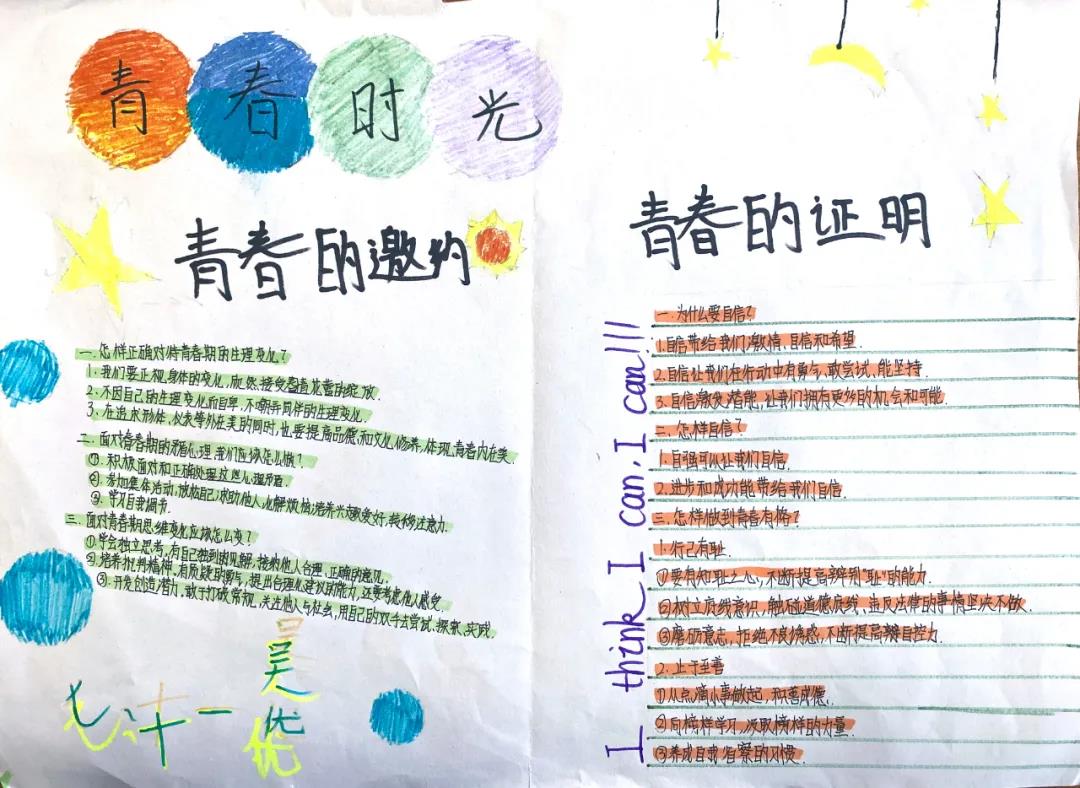 青春时光
青春的邀约
一.怎样正确对待青春期的生理变化?
1.我们要正视身体的变化,欣然接受青春花蕾的绽放.
2.不因自己的生理变化而自卑,不嘲弄同伴的生理变化.
3.在追求形体,仪表等外在美的同时,也要提高品德和文化修养,体现青春内在美.
二.面对青春期的矛盾心理,我们应该怎么做?
①.积极面对和正确处理这些心理矛盾.
②.参加集体活动,放松自己;求助他人,化解烦恼;培养兴趣爱好,转移注意力.
③.学习自我调节.
三.面对青春期思维变化应该怎么变?
①学会独立思考,有自己独到的见解,接纳他人合理,正确的意见.
②培养批判精神,有质疑的勇气,提出合理化建议的能力,还要考虑他人感受.
③.开发创造潜力,敢于打破常规,关注他人与社会,用自己的双手去尝试.探索.实践
七计一
吴优
青春的证明
I think I can,I can!!!
一.为什么要自信?
1.自信带给我们激情、自信和希望.
2.自信让我们在行动中有勇气,敢尝试,能坚持.
3.自信激发潜能,让我们拥有更多的机会和可能.
二.怎样自信?
1.自强可以让我们自信.
2.进步和成功能带给我们自信.
三.怎样做到青春有格?
1.行己有耻.
①要有知耻之心,不断提高辨别"耻"的能力.
②树立底线意识,触碰道德底线、违反法律的事情坚决不做.
③磨砺意志,拒绝不良诱惑,不断提高自控力.
2.止于至善
①从点滴小事做起,积善成德.
②向榜样学习,汲取榜样的力量.
③养成自我省察的习惯.